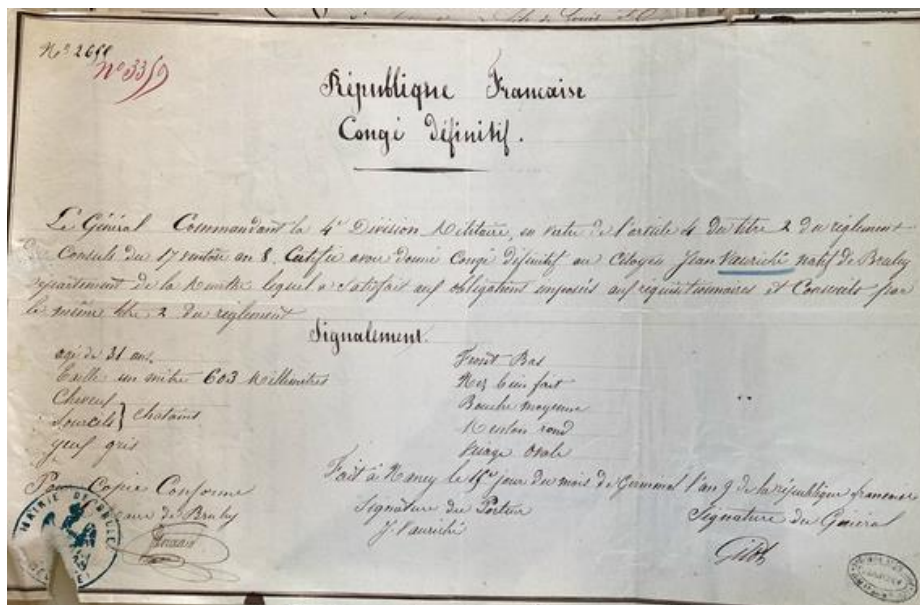 N° 3359
République Française
Congé définitif.
Le Général Commandant la 4e Division Militaire, en vertu de l'article 4 du titre 2 du règlement
Consuls du 17 ventose an 8. Certifie avoir donné Congé définitif au Citoyen Jean Vaurichi natif de Bruley
département de la Meurthe lequel a satisfait aux obligations imposées aux réquisitionnaires et Conscrits par
le même titre 2 du règlement
Signalement.
agé de 31 ans.
Taille un mètre 603 Millimètres
Cheveux
Sourcils } chatains
yeux gris
Front Bas
Nez bien fait
Bouche moyenne
Menton rond
Visage Ovale
Fait à Nancy le 15e jour du mois de Germinal l'an 9 de la république francaise
Pour Copie Conforme
Maire de Bruley
Signature du Porteur
J. Vaurichi
Signature du Général
Gilot
MAIRIE DE BRULEY